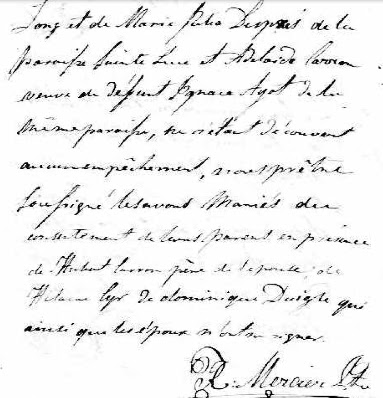 Long et de Marie Julie Després de la
paroisse Sainte Luce et Adelaide Caron
veuve de défunt Ignace Ayot de la
même paroisse, ne s'étant découvert
aucun empêchement, nous prêtre
soussigné les avons mariés du
consentement de leurs parens en présence
de Hubert Caron père de l'épouse, de
Hilaire Cyr de dominique Daigle qui
ainsi que les époux n'ont su signer.
R. Mercier Ptre